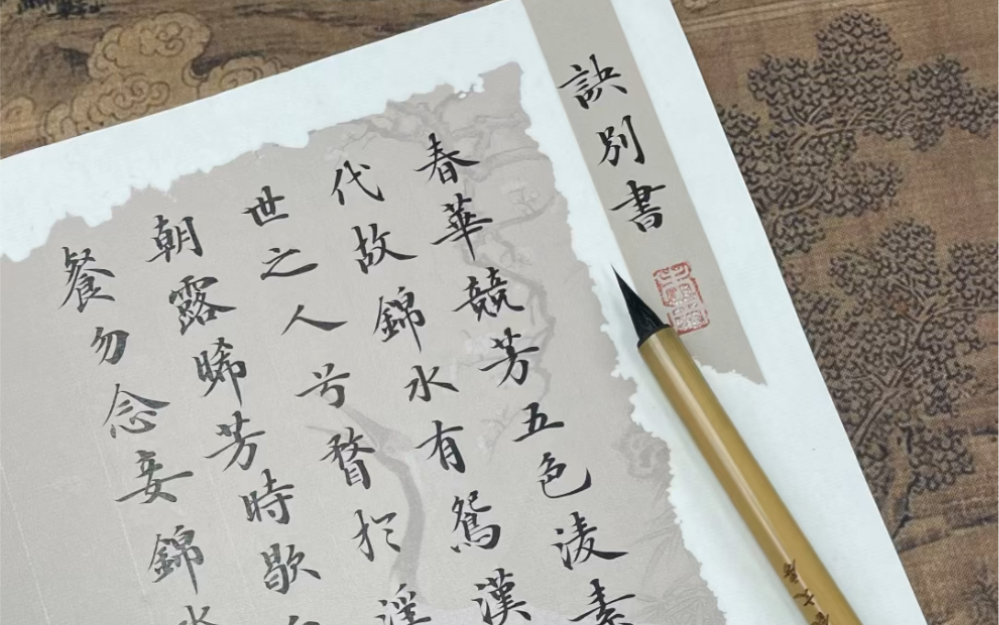 訣別書
春華競芳五色淩素
代故錦水有鴛漢
世之人兮瞀於淫
朝露晞芳時歇
餐勿念妾錦水